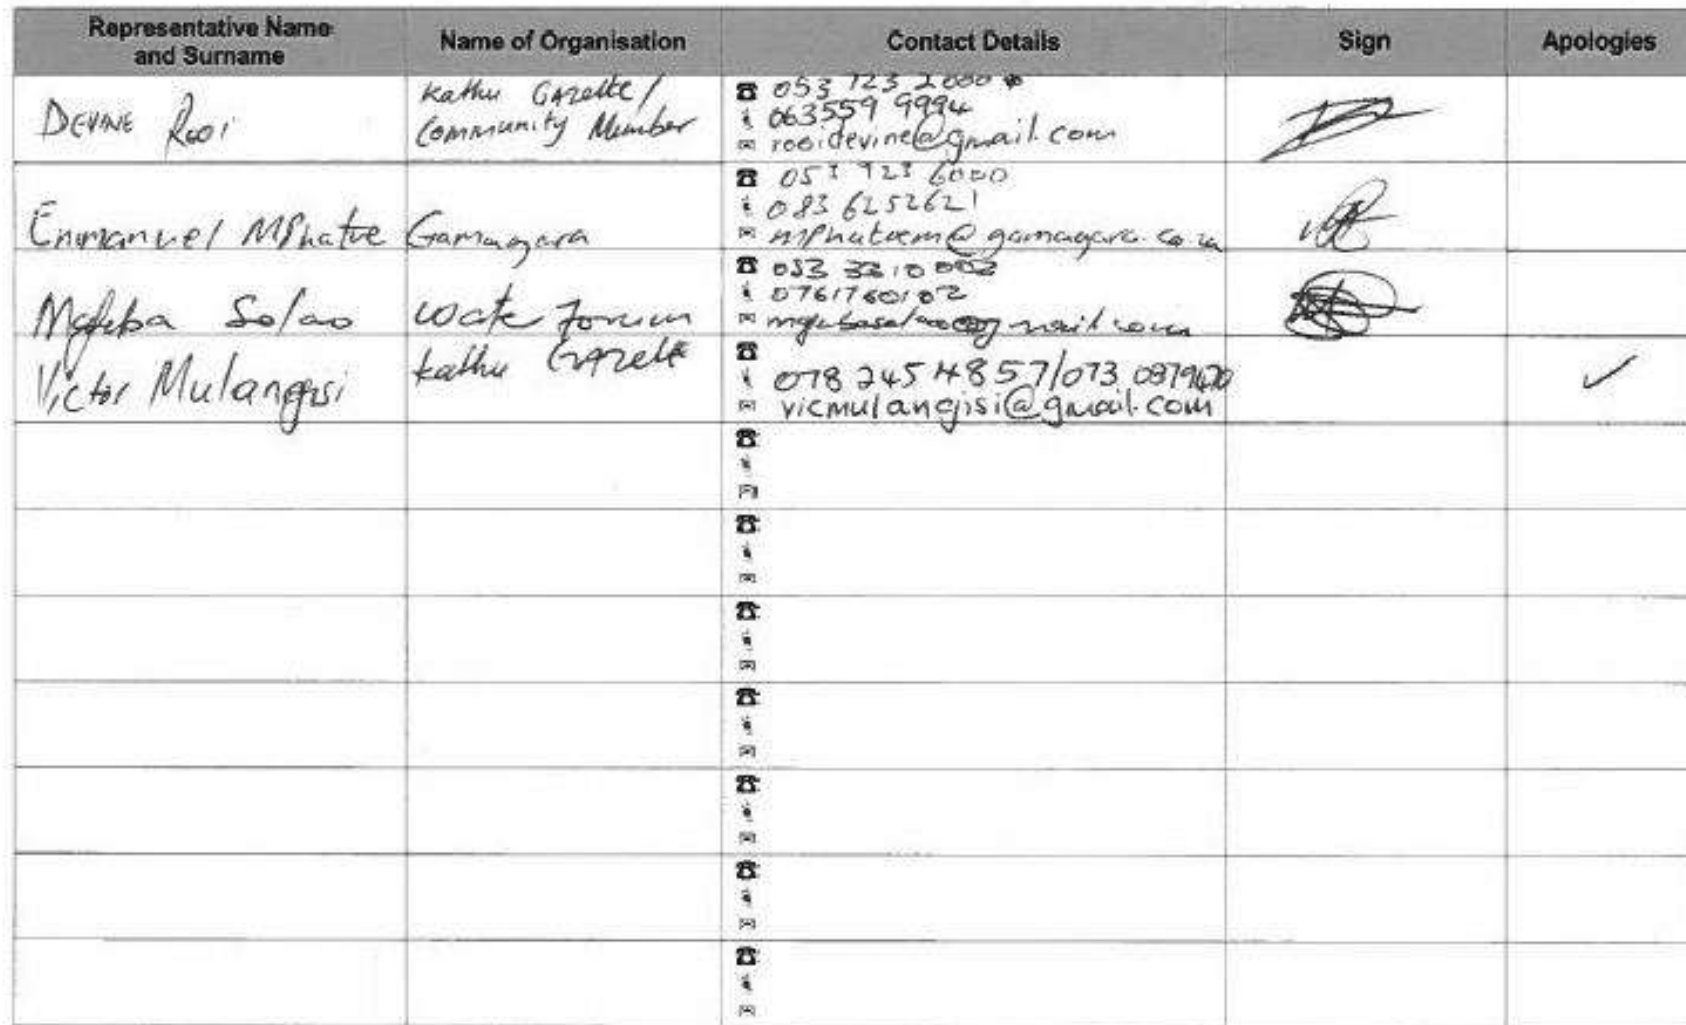 Representative Name and Surname
Name of Organisation
Contact Details
Sign
Apologies
Devine Rooi
Kathu Gazette / Community Member
053 723 2000
063559 9994
rooidevine@gmail.com
Emmanuel
Gamagara
6000
083 6252621
Solao
Forum
053 331 0
0761760102
Victor Mulangisi
Kathu Gazette
078 245 4857/073
vicmulangisi@gmail.com